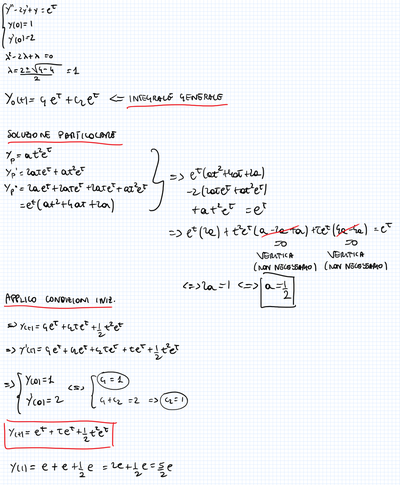 y'' - 2y' + y = e^t
y(0) = 1
y'(0) = 2
λ² - 2λ + λ = 0
λ = (2 ± √(4-4))/2 = 1
Y₀(t) = c₁ e^t + c₂ e^t <= INTEGRALE GENERALE
SOLUZIONE PARTICOLARE
Yp = at²e^t
Yp' = 2ate^t + at²e^t
Yp'' = 2ae^t + 2ate^t + 2ate^t + at²e^t
= e^t(at² + 4at + 2a)
=> e^t(at² + 4at + 2a)
-2(2ate^t + at²e^t)
+ at²e^t = e^t
=> e^t(2a) + t²e^t(a - 2a + a) + te^t(4a - 4a) = e^t
=0 =0
VERIFICA VERIFICA
(NON NECESSARIO) (NON NECESSARIO)
<=> 2a = 1 <=> a = 1/2
APPLICO CONDIZIONI INIZ.
=> y(t) = c₁e^t + c₂te^t + 1/2 t²e^t
=> y'(t) = c₁e^t + c₂e^t + c₂te^t + te^t + 1/2 t²e^t
=> { y(0) = 1 <=> { c₁ = 1
y'(0) = 2 c₁ + c₂ = 2 => c₂ = 1
y(t) = e^t + te^t + 1/2 t²e^t
y(1) = e + e + 1/2 e = 2e + 1/2 e = 5/2 e